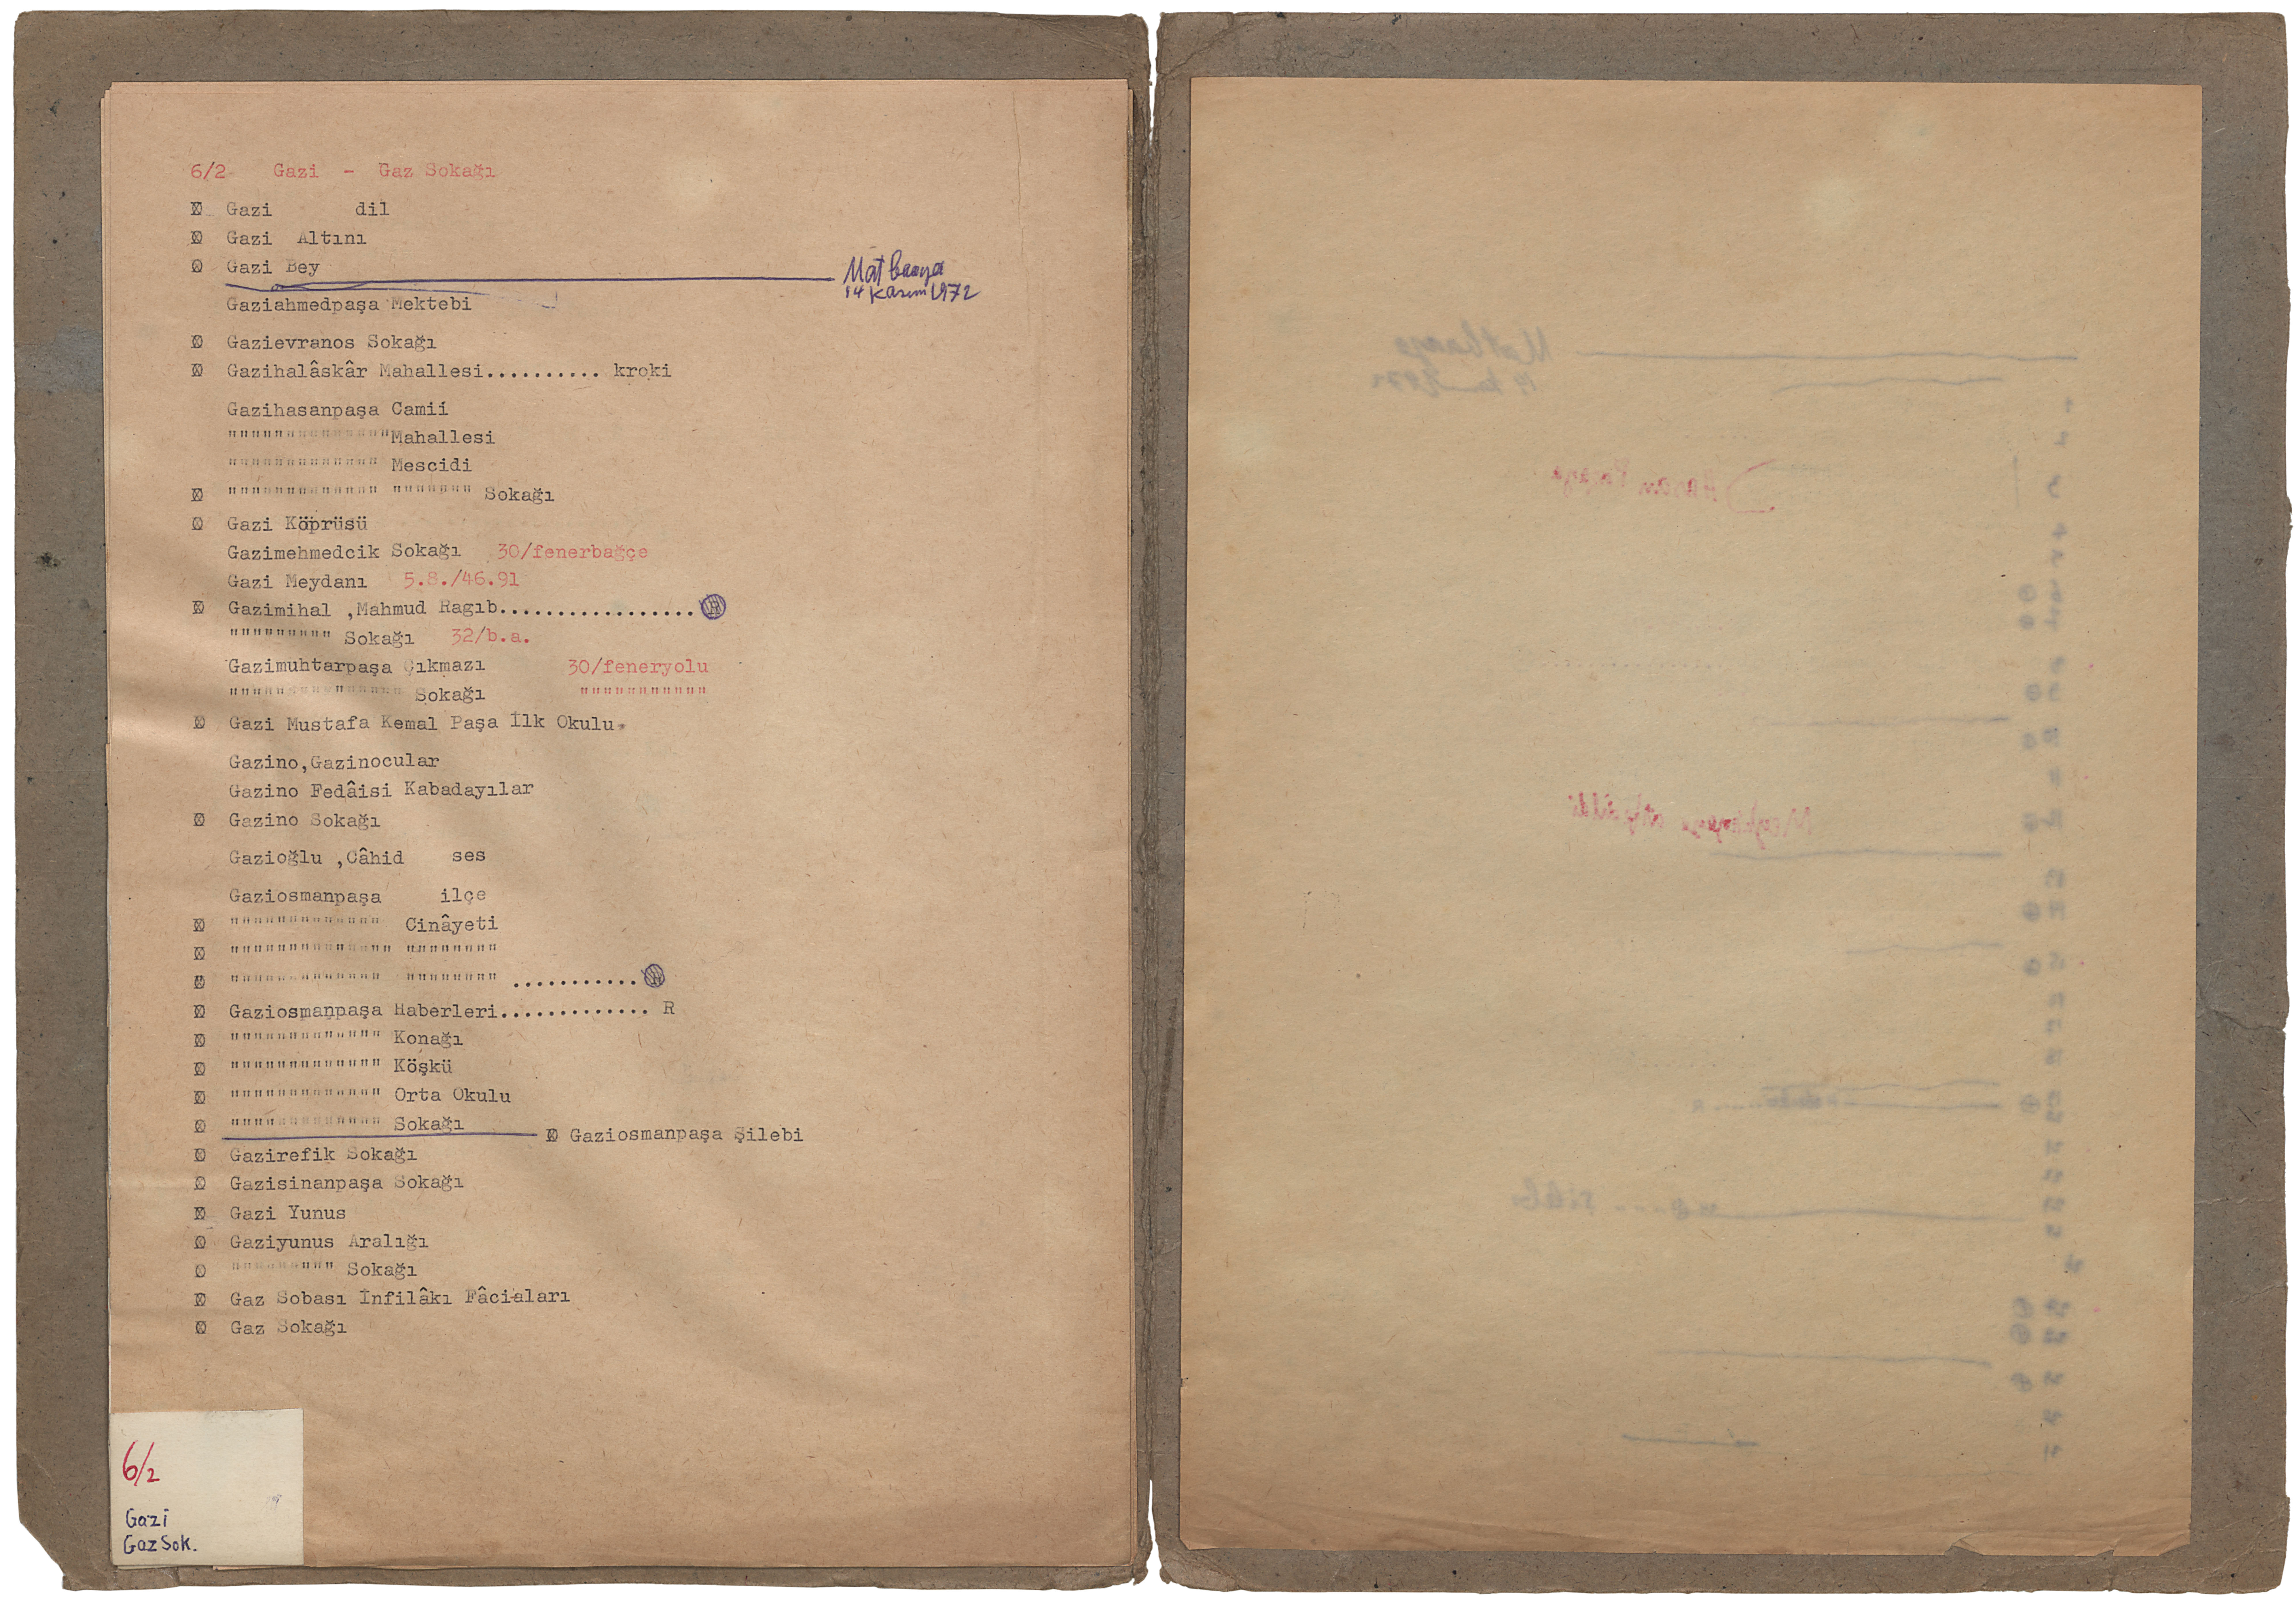 6/2 Gazi - Gaz Sokağı
Gazi dil
Gazi Altını
Gazi Bey
Matbaaya
14 Kasım 1972
Gaziahmedpaşa Mektebi
Gazievranos Sokağı
Gazihalâskâr Mahallesi.......... kroki
Gazihasanpaşa Camii
"""""""""""""" Mahallesi
""""""""""""" Mescidi
""""""""""""" """"""" Sokağı
Gazi Köprüsü
Gazimehmedcik Sokağı 30/fenerbağçe
Gazi Meydanı 5.8./46.91
Gazimihal ,Mahmud Ragıb.................
""""""""" Sokağı 32/b.a.
Gazimuhtarpaşa Çıkmazı 30/feneryolu
""""""""""""""" Sokağı """""""""""
Gazi Mustafa Kemal Paşa İlk Okulu
Gazino,Gazinocular
Gazino Fedâisi Kabadayılar
Gazino Sokağı
Gazioğlu ,Câhid ses
Gaziosmanpaşa ilçe
""""""""""""" Cinâyeti
"""""""""""""" """"""""
""""""""""""" """""""" ...........
Gaziosmanpaşa Haberleri............. R
""""""""""""" Konağı
""""""""""""" Köşkü
""""""""""""" Orta Okulu
""""""""""""" Sokağı
Gaziosmanpaşa Şilebi
Gazirefik Sokağı
Gazisinanpaşa Sokağı
Gazi Yunus
Gaziyunus Aralığı
""""""""" Sokağı
Gaz Sobası İnfilâkı Fâciaları
Gaz Sokağı
6/2
Gazi
Gaz Sok.